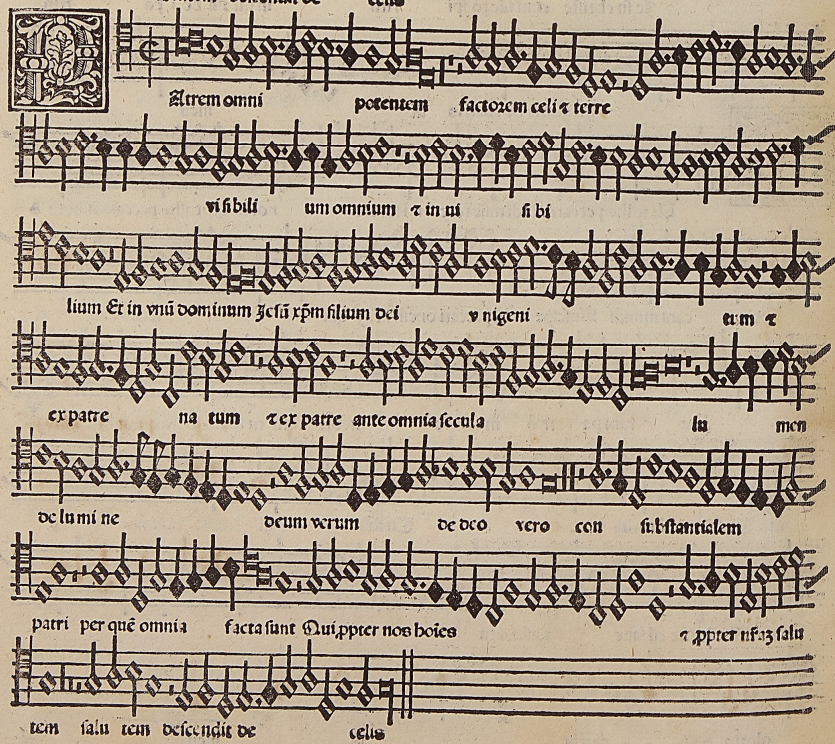 celis
Atrem omni potentem factorem celi ⁊ terre
visibili um omnium ⁊ in ui si bi
lium Et in vnū dominum Jesū xp̄m filium dei v nigeni tum ⁊
ex patre na tum ⁊ ex patre ante omnia secula lu men
de lu mi ne deum verum de deo vero con substantialem
patri per quē omnia facta sunt Qui ꝓpter nos hoīes ⁊ ꝓpter nr̄aꝫ salu
tem salu tem descendit de celis